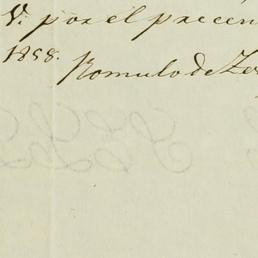 V. por el precen
1858.
Romulo de Ze